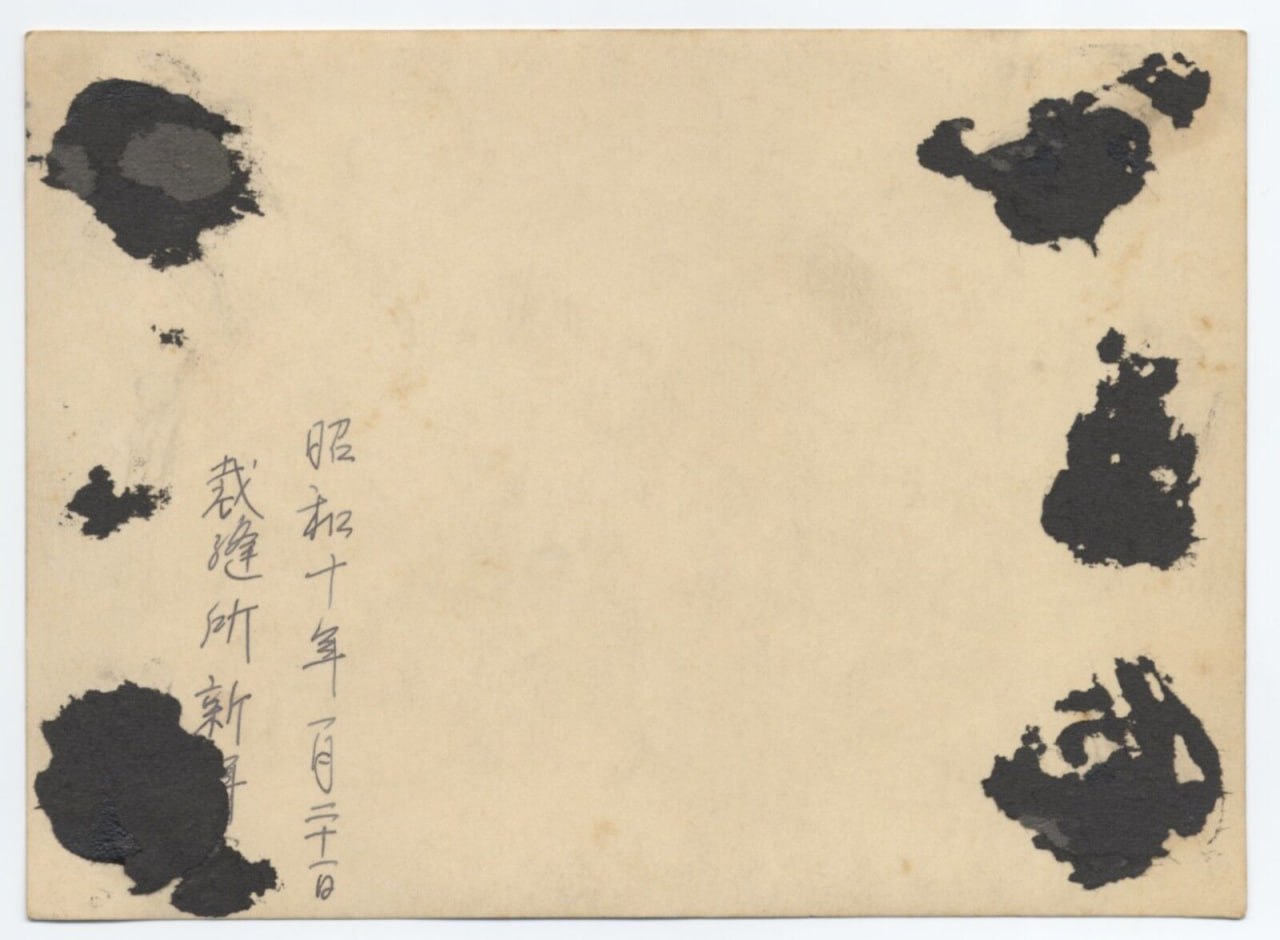 昭和十年一月二十一日
裁縫所新